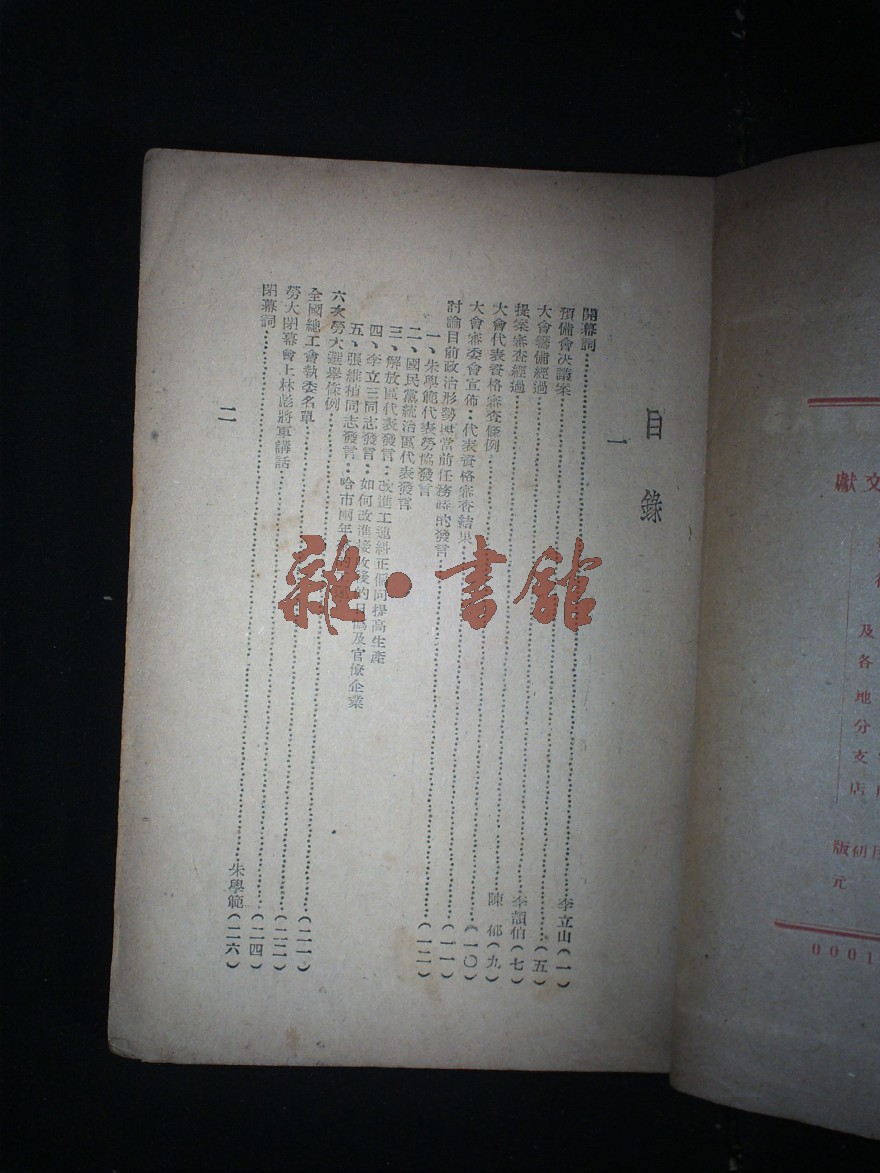 獻文
及各地分支店
版初月
元
0001
目錄
一
開幕詞…………李立山(一)
預備會決議案…………(五)
大會籌備經過…………李頡伯(七)
提案審查經過…………陳 郁(九)
大會代表資格審查條例…………(一〇)
大會審委會宣佈:代表資格審查結果…………(一一)
討論目前政治形勢與當前任務時的發言…………(一二)
一、朱學範代表勞協發言
二、國民黨統治區代表發言
三、解放區代表發言:改進工運糾正偏向提高生產
四、李立三同志發言:如何改進接收後的日偽及官僚企業
五、張維楨同志發言:哈市兩年
六次勞大選舉條例…………(二一)
全國總工會執委名單…………(二二)
勞大閉幕會上林彪將軍講話…………(二四)
閉幕詞…………朱學範(二六)
二
雜·書館